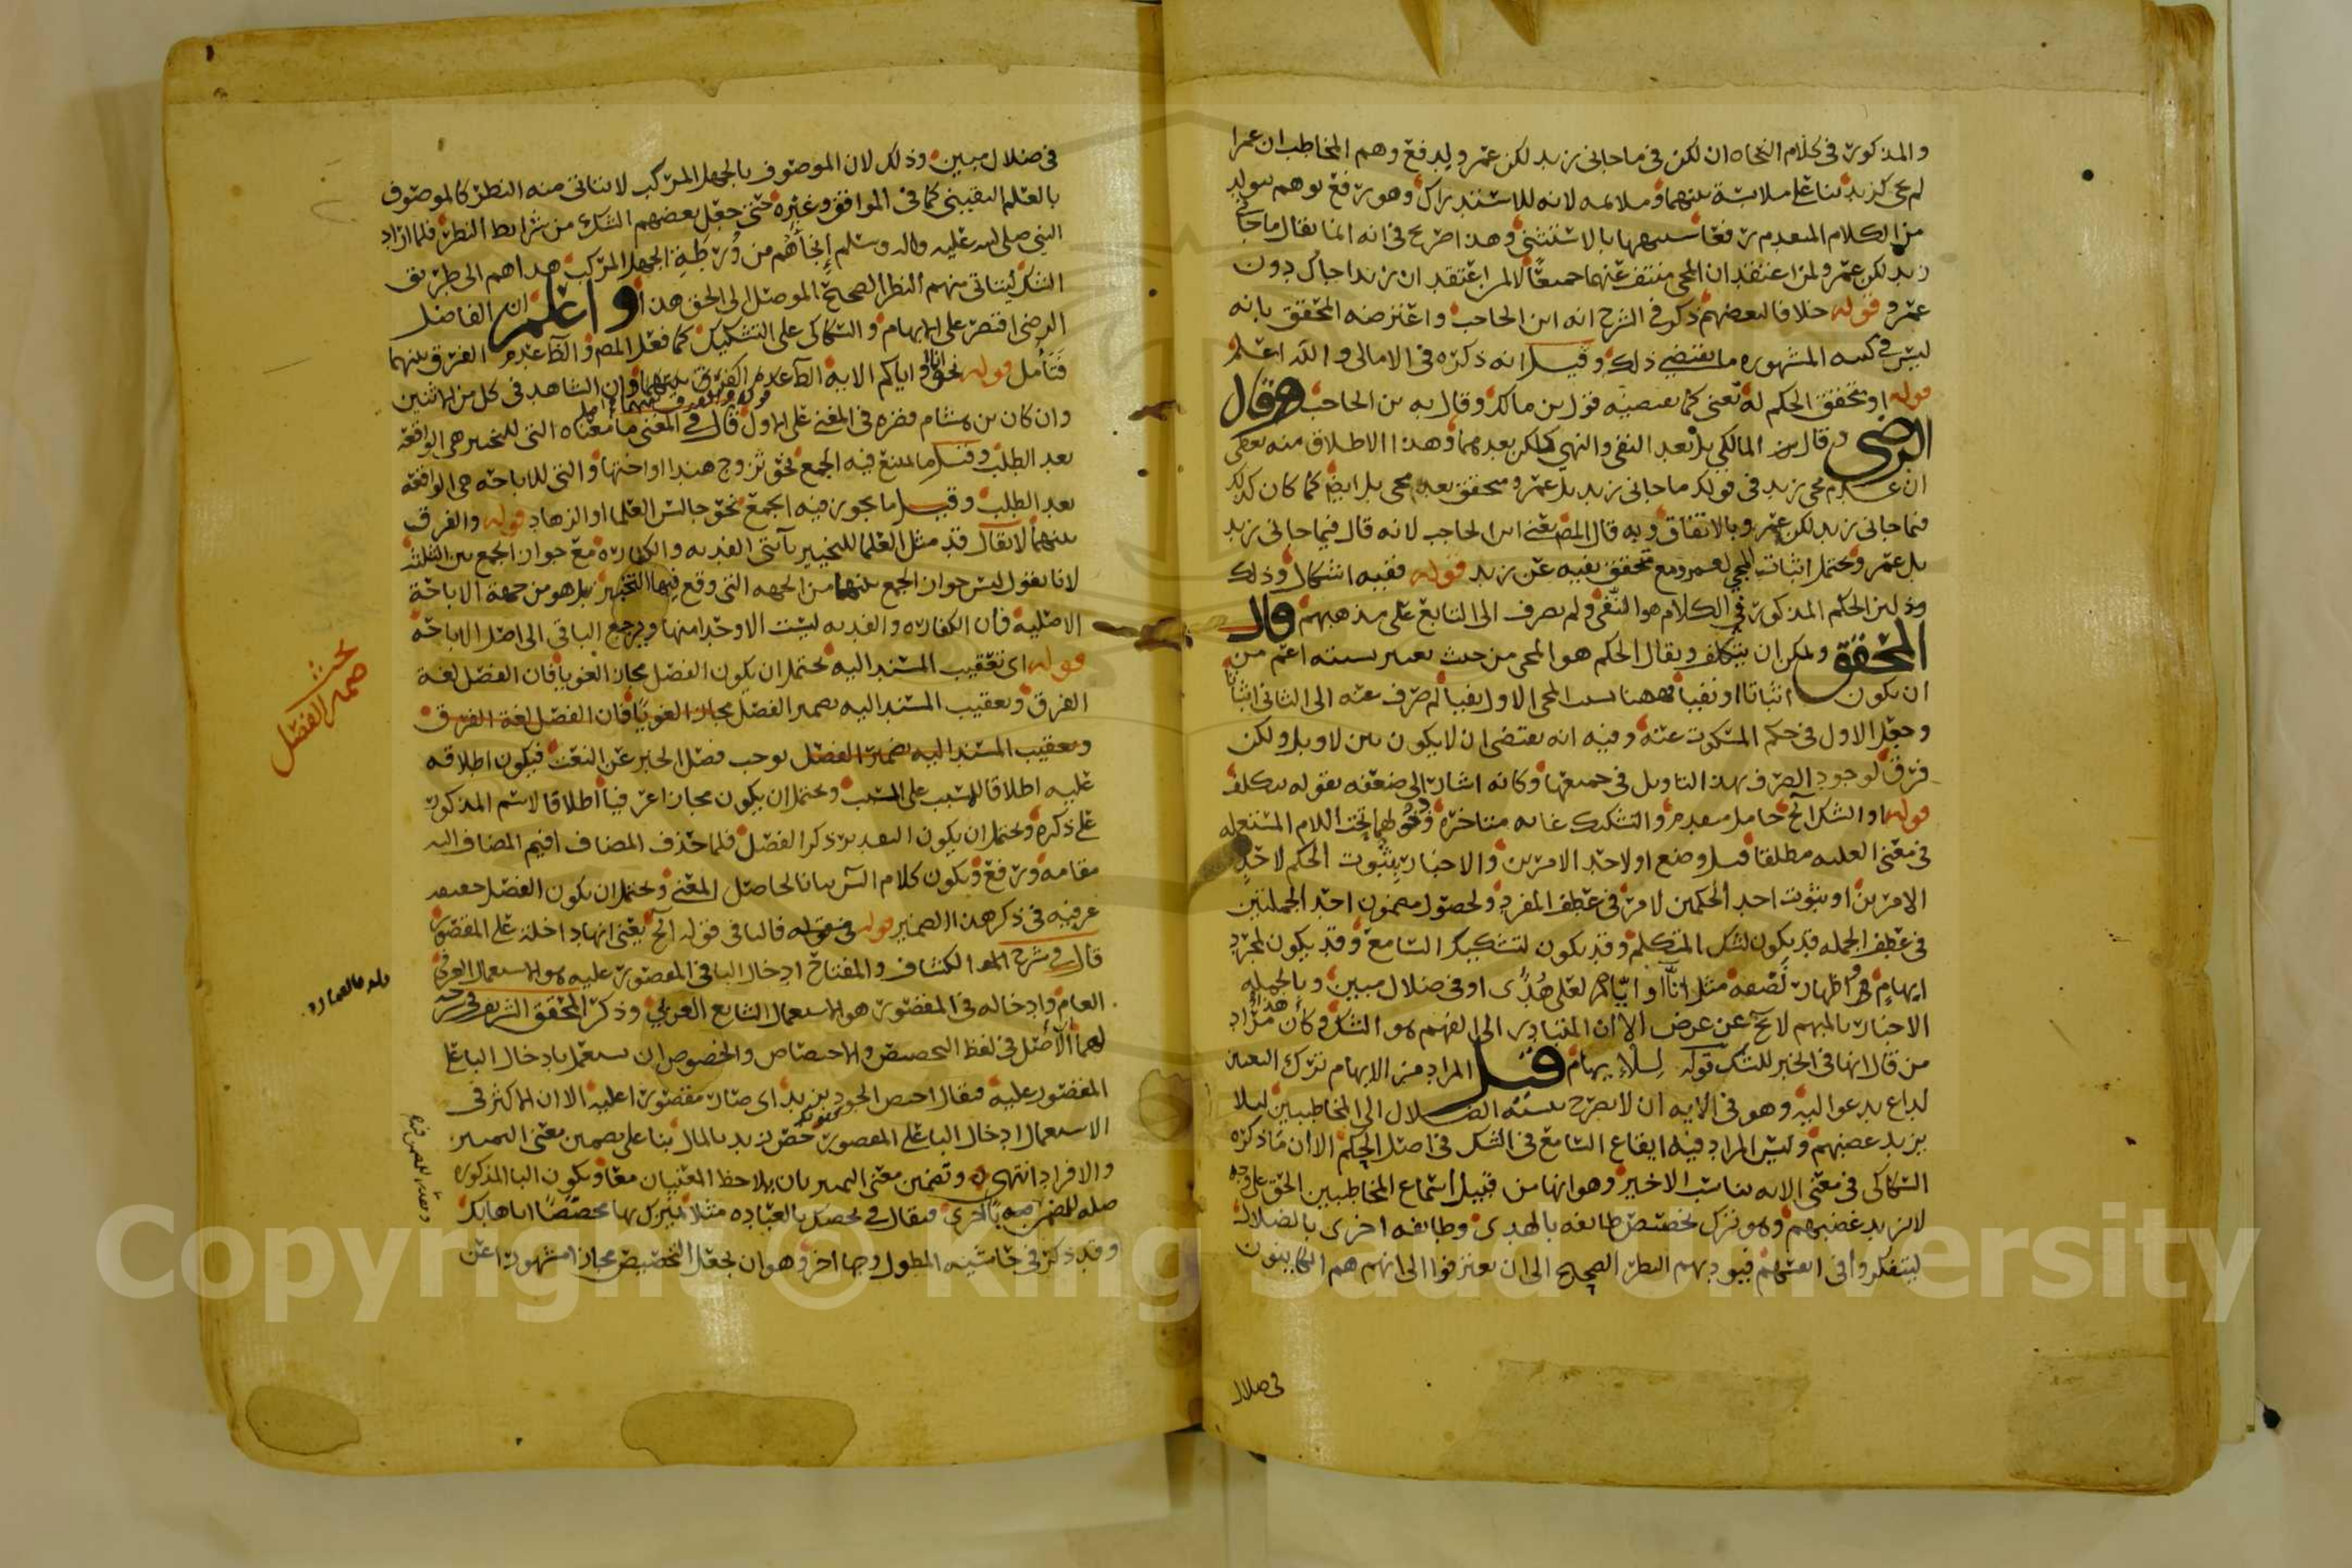 والمذكور في كلام النحاه ان لكن في ما جاني زيد لكن عمرو لدفع وهم المخاطب ان عمرا
لم يجي كزيد بنا على ملابسة بينهما وملايمه لانه للاستدراك وهو رفع توهم يتولد
من الكلام المتقدم رفعا شبيها بالاستثنى وهذا صريح في انه انما يقال ما جاني
زيد لكن عمرو لمن اعتقد ان المجي منتف عنهما جميعا لا لمن اعتقد ان زيدا جاك دون
عمرو قوله خلافا لبعضهم ذكر في الشرح انه ابن الحاجب واعترضه المحقق بانه
ليس في كتبه المشهوره ما يقتضي ذلك وقيل انه ذكره في الامالي والله اعلم
قوله او تحقق الحكم له يعني كما يقتضيه قول بن مالك وقال به بن الحاجب قال
الرضي وقال المالكي بل بعد النفي والنهي كلكن بعدهما وهذا الاطلاق منه يعطي
ان عدم مجي زيد في قولك ما جاني زيد بل عمرو متحقق بعد مجي بل ايضا كما كان كذلك
في ما جاني زيد لكن عمرو بالاتفاق وبه قال المص يعني ابن الحاجب لانه قال في ما جاني زيد
بل عمرو يحتمل اثبات المجي لعمرو مع تحقق نفيه عن زيد قوله ففيه اشكال وذلك
الحكم المذكور في الكلام هو النفي ولم يصرف الى التابع على مذهبهم قال
المحقق ويمكن ان يتكلف ويقال الحكم هو المجي من حيث يعتبر نسبته اعم من
ان يكون اثباتا او نفيا فههنا نسب المجي الاول نفيا ثم صرف عنه الى الثاني اثباتا
وجعل الاول في حكم المسكوت عنه وفيه انه يقتضي ان لا يكون بين لا وبل ولكن
فرق لوجود الصرف بهذا التاويل في جميعها وكانه اشار الى ضعفه بقوله يتكلف
قوله او الشك الخ حامل متقدم والتشكيك غايه متاخره ودخولهما تحت اللام المستعمله
في معنى العليه مطلقا قيل وضع او لاحد الامرين والاخبار بثبوت الحكم لاحد
الامرين او بثبوت احد الحكمين لامر في عطف المفرد ولحصول مضمون احد الجملتين
في عطف الجمله قد يكون لشك المتكلم وقد يكون لتشكيك السامع وقد يكون لمجرد
ابهام في اظهار نصفه مثل انا او اياكم لعلى هدى او في ضلال مبين وبالجمله
الاخبار بالمبهم لا يخ عن عرض الا ان المتبادر الى الفهم هو الشك وكان هذا مراد
من قال انها في الخبر للشك قوله للابهام قيل المراد من الابهام ترك التعيين
لداع يدعو اليه وهو في الايه ان لا يصرح بنسبة الضلال الى المخاطبين ليلا
يزيد غضبهم وليس المراد فيه ايقاع السامع في الشك في اصل الحكم الا ان ما ذكره
السكاكي في معنى الايه يناسب الاخير وهو انها من قبيل اسماع المخاطبين الحق على وجه
لا يزيد غضبهم وهو ترك تخصيص طايفه بالهدى وطايفه اخرى بالضلال
ليتفكروا في انفسهم فيوديهم النظر الصحيح الى ان يعترفوا الى انهم هم الكاينون
في ضلال
في ضلال مبين وذلك لان الموصوف بالجهل المركب لا يتاتى منه النظر كالموصوف
بالعلم اليقيني كما في المواقف وغيره حتى جعل بعضهم الشك من شرايط النظر فلما اراد
النبي صلى الله عليه واله وسلم انجاهم من ورطة الجهل المركب هداهم الى طريق
الشك ليتاتى منهم النظر الصحيح الموصل الى الحق هذا واعلم ان الفاضل
الرضي اقتصر على الابهام والسكاكي على التشكيك كما فعل المص والظ عدم الفرق بينهما
فتامل قوله نحو انا او اياكم الايه الظ عدم الفرق بينهما وان الشاهد في كل من الاثنين
وان كان بن هشام قصره في المغني على الاول قال في المغني ما معناه التي للتخيير هي الواقعه
بعد الطلب وقيل ما يمتنع فيه الجمع نحو تزوج هندا او اختها والتي للاباحه هي الواقعه
بعد الطلب وقيل ما يجوز فيه الجمع نحو جالس العلما او الزهاد قوله والفرق
بينهما لا يقال قد مثل العلما للتخيير بآيتي الفديه والكفاره مع جواز الجمع بين الثلث
لانا نقول ليس جواز الجمع بينهما من الجهه التي وقع فيها التخيير بل هو من جهة الاباحة
الاصليه فان الكفاره والفديه ليست الا واحدا منها ويرجع الباقي الى اصل الاباحه
قوله اي تعقيب المسند اليه يحتمل ان يكون الفصل مجازا لغويا فان الفصل لغة
الفرق وتعقيب المسند اليه بضمير الفصل مجازا لغويا فان الفصل لغة الفرق
وتعقيب المسند اليه بضمير الفصل يوجب فصل الخبر عن النعت فيكون اطلاقه
عليه اطلاقا للمسبب على السبب ويحتمل ان يكون مجازا عرفيا اطلاقا لاسم المذكور
على ذكره ويحتمل ان يكون التقدير ذكر الفصل فلما حذف المضاف اقيم المضاف اليه
مقامه ورفع ويكون كلام الش بيانا لحاصل المعنى ويحتمل ان يكون الفصل حقيقه
عرفيه في ذكر هذا الضمير قوله فالبا في قوله الخ يعني انها داخله على المقصور
قال في شرح الكشاف والمفتاح ادخال البا في المقصور عليه هو الاستعمال العرفي
العام وادخاله في المقصور هو الاستعمال الشايع العربي وذكر المحقق الشريف في شرحه
لهما الاصل في لفظ التخصيص والاختصاص والخصوص ان يستعمل بادخال البا على
المقصور عليه فيقال اختص الجود بزيد اي صار مقصورا عليه الا ان الاكثر في
الاستعمال ادخال البا على المقصور خص زيد بالمال بنا على تضمين معنى التمييز
والافراد انتهى وتضمين معنى التمييز بان يلاحظ المعنيان معا ويكون البا المذكوره
وقد ذكر في حاشيته المطول وجها اخر وهو ان يجعل التخصيص مجازا مشهورا عن
بحث
ضمير الفصل